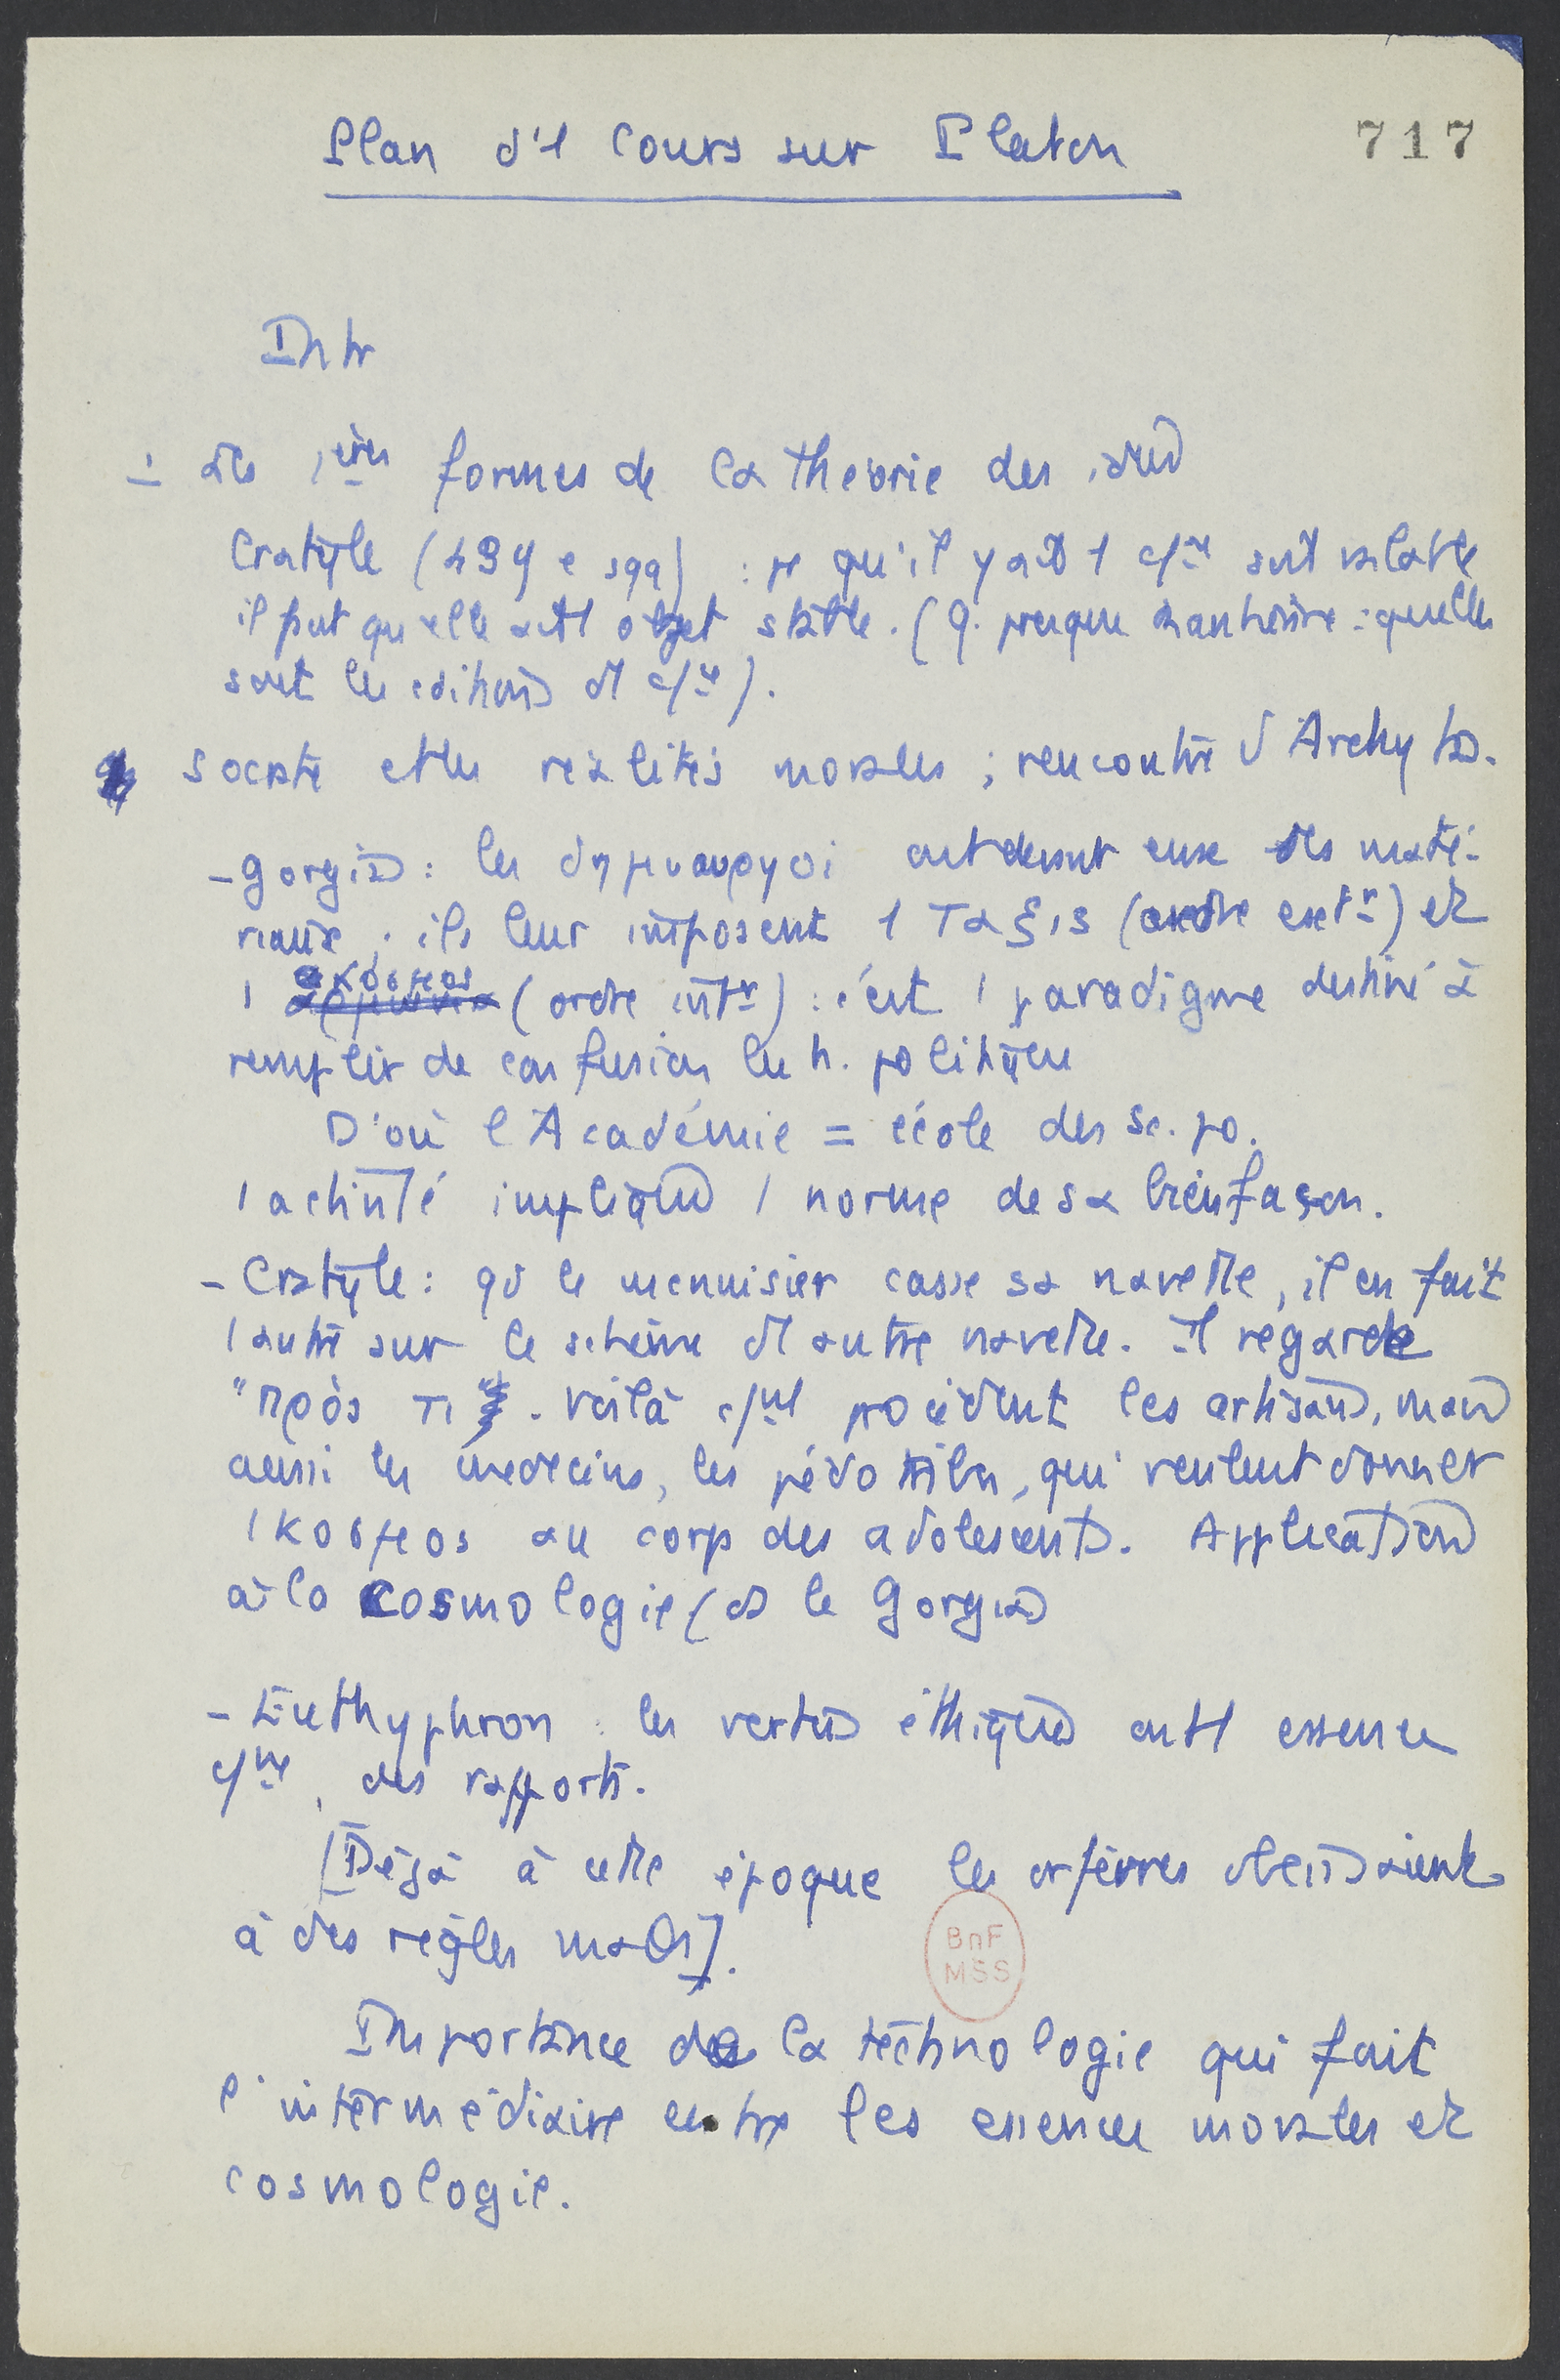 Plan d'1 cours sur Platon
717
Intr
I les 1ères formes de la théorie des idées
Cratyle (439 e sqq) : pr qu'il y ait 1 c/ce soit valable
il faut qu'elle ait 1 objet stable. (q. presque kantienne : quelles
sont les cditions d'1 c/ce).
Socrate et les réalités morales ; rencontre d'Archytas.
- Gorgias : les δημιουργοι ont devant eux des maté-
riaux ; ils leur imposent 1 ταξις (ordre extr) et
1 κοσμος (ordre intr) : c'est 1 paradigme destiné à
remplir de confusion les h. politiques
D'où l'Académie = école des Sc. po.
1 activité implique 1 norme de sa bienfaçon.
- Cratyle : qd le menuisier casse sa navette, il en fait
1 autre sur le schème d'1 autre navette. Il regarde
"προς τι". Voilà c/nt procèdent les artisans, mais
aussi les médecins, les pédotribes, qui veulent donner
1 κοσμος au corps des adolescents. Application
à la cosmologie (ds le Gorgias
- Euthyphron : les vertus éthiques ont 1 essence
c/ne, des rapports.
[Déjà à cette époque les orfèvres obéissaient
à des règles maths].
Importance de la technologie qui fait
l'intermédiaire entre les essences morales et
cosmologie.
BnF
MSS